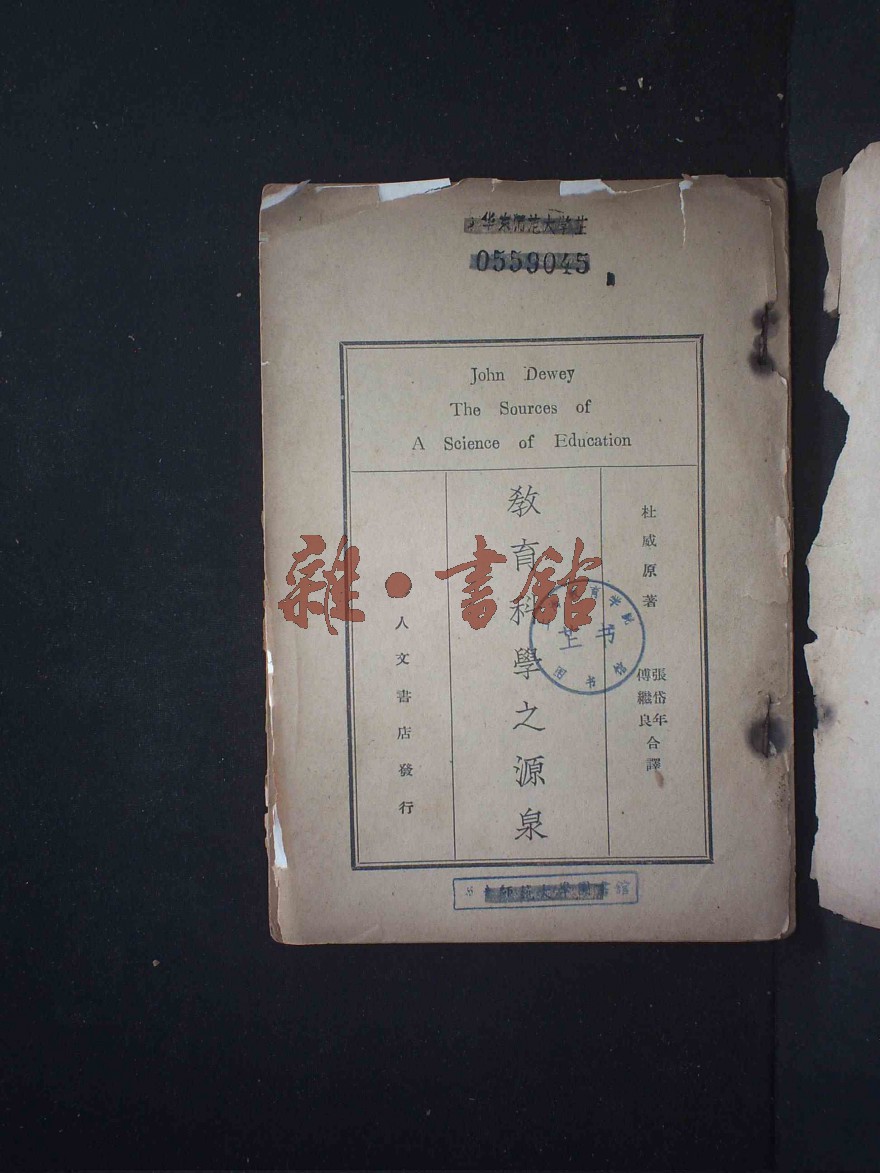 华东师范大学
0559045
John Dewey
The Sources of
A Science of Education
杜威原著
張岱年
傅繼良
合譯
教育科學之源泉
人文書店發行
雜·書館
师范大学圖書館